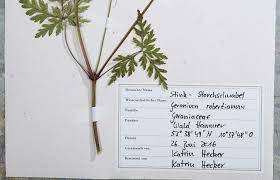 Deutscher Name Stink-Storchschnabel
Wissenschaftlicher Name Geranium robertianum
Familie Geraniaceae
Fundort Wald Hannover
52° 38' 49" N 10° 57' 48" O
26. Juni 2016
Gesammelt von Katrin Hecker
Bestimmt von Katrin Hecker